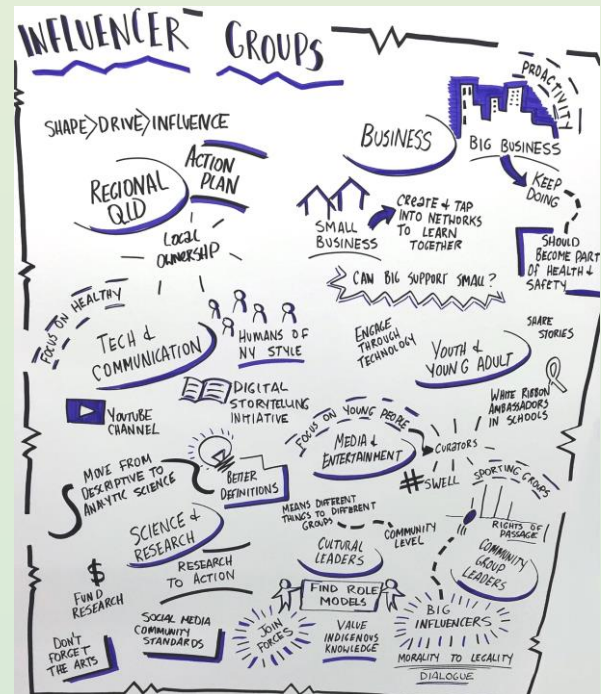 INFLUENCER GROUPS
SHAPE>DRIVE>INFLUENCE
REGIONAL
QLD
ACTION
PLAN
LOCAL
OWNERSHIP
BUSINESS
PROACTIVITY
BIG BUSINESS
KEEP
DOING
SHOULD
BECOME PART
OF HEALTH &
SAFETY
SMALL
BUSINESS
CREATE & TAP
INTO NETWORKS
TO LEARN
TOGETHER
CAN BIG SUPPORT SMALL?
FOCUS ON HEALTHY
TECH &
COMMUNICATION
HUMANS OF
NY STYLE
YOUTUBE
CHANNEL
DIGITAL
STORYTELLING
INITIATIVE
ENGAGE
THROUGH
TECHNOLOGY
YOUTH &
YOUNG ADULT
SHARE
STORIES
WHITE RIBBON
AMBASSADORS
IN SCHOOLS
FOCUS ON YOUNG PEOPLE
MEDIA &
ENTERTAINMENT
CURATORS
#SWELL
MOVE FROM
DESCRIPTIVE TO
ANALYTIC SCIENCE
BETTER
DEFINITIONS
SCIENCE &
RESEARCH
RESEARCH
TO ACTION
$
FUND
RESEARCH
DON'T
FORGET
THE ARTS
SOCIAL MEDIA
COMMUNITY
STANDARDS
MEANS DIFFERENT
THINGS TO DIFFERENT
GROUPS
COMMUNITY
LEVEL
CULTURAL
LEADERS
FIND ROLE
MODELS
JOIN
FORCES
VALUE
INDIGENOUS
KNOWLEDGE
SPORTING GROUPS
RIGHTS OF
PASSAGE
COMMUNITY
GROUP
LEADERS
BIG
INFLUENCERS
MORALITY TO LEGALITY
DIALOGUE